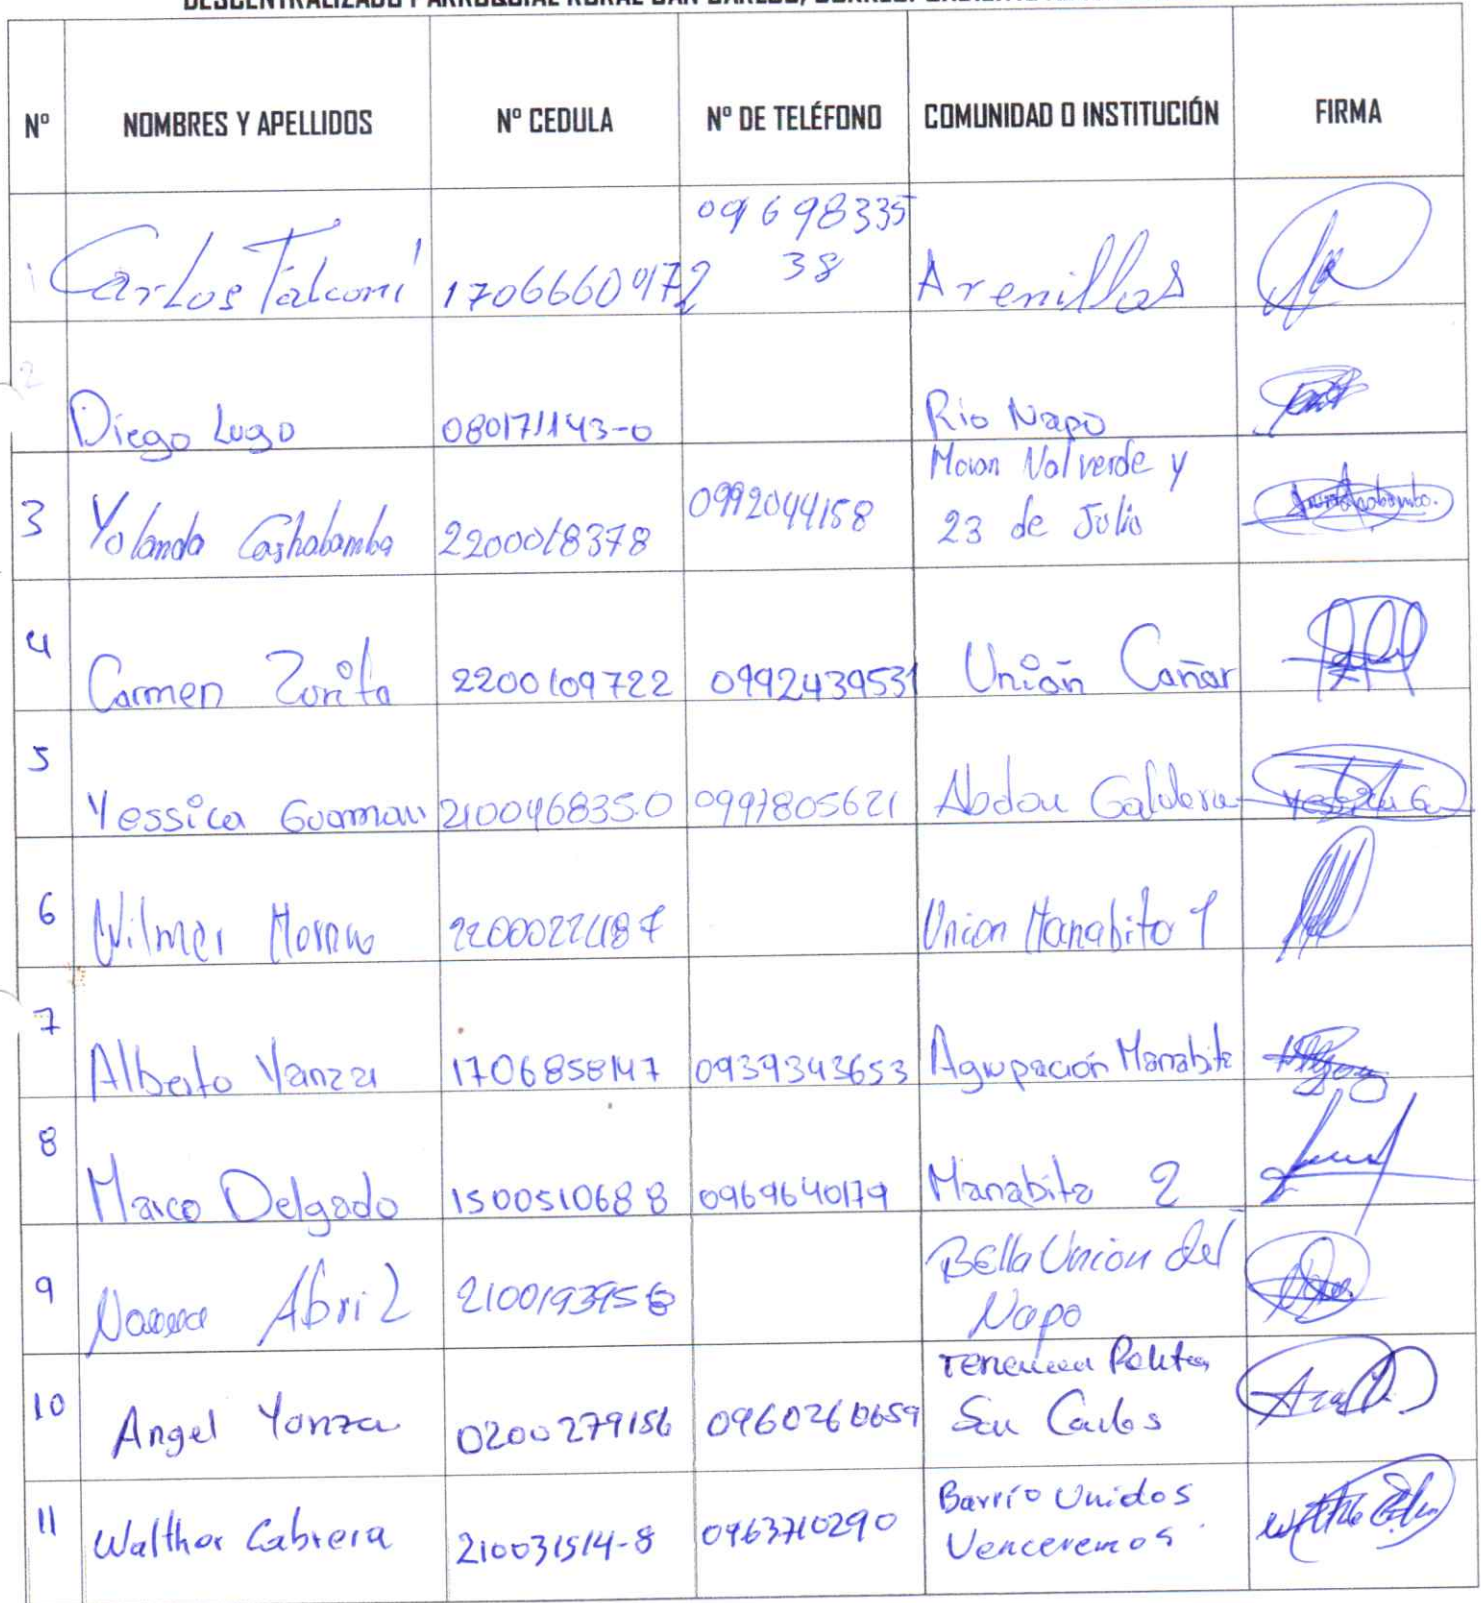 DESCENTRALIZADO PARROQUIAL RURAL SAN CARLOS,
Nº NOMBRES Y APELLIDOS Nº CEDULA Nº DE TELÉFONO COMUNIDAD O INSTITUCIÓN FIRMA
1 Carlos Falconi 1706660972 09698335 38 Arenillas
2 Diego Lugo 080171143-0 Rio Napo
3 Yolanda Cashabamba 2200018378 0992044158 Moran Valverde y 23 de Julio
4 Carmen Zurita 2200109722 0992439531 Unión Cañar
5 Yessica Guaman 210046835-0 0997805621 Abdon Calderon
6 Wilmer Union Manabita 1
7 Alberto Yanza 1706858147 0939343653 Agrupación Manabita
8 Marco Delgado 1500510688 0969640179 Manabita 2
9 Abril Bella Union del Napo
10 Angel Yanza 0200279156 0960260659 San Carlos
11 Walther Cabrera 210031514-8 0963710290 Barrio Unidos Venceremos